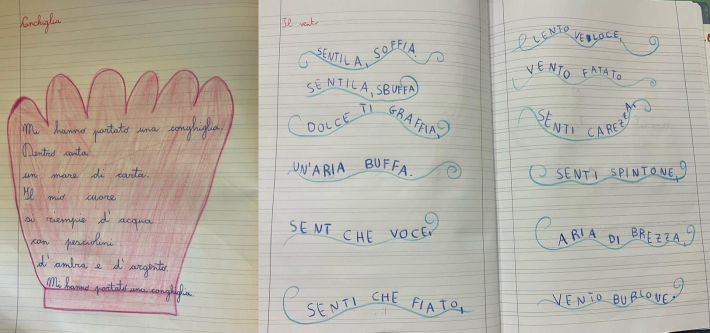 Conchiglia
Mi hanno portato una conghiglia.
Dentro canta
un mare di carta.
Il mio cuore
si riempie d'acqua
con pesciolini
d'ambra e d'argento.
Mi hanno portato una conghiglia
Il vento
SENTILA, SOFFIA.
SENTILA, SBUFFA
DOLCE TI GRAFFIA,
UN'ARIA BUFFA.
SENT CHE VOCE,
SENTI CHE FIATO,
LENTO VELOCE,
VENTO FATATO
SENTI CAREZZA,
SENTI SPINTONE,
ARIA DI BREZZA,
VENTO BURLONE.